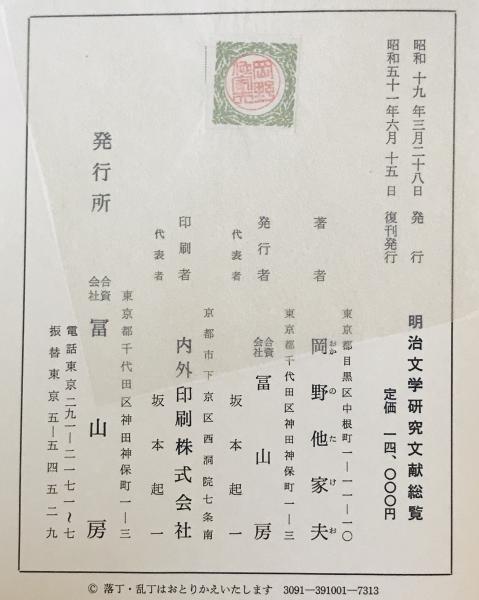 昭和十九年三月二十八日 発行
昭和五十一年六月十五日 復刊発行
明治文学研究文献総覧
定価 一四、〇〇〇円
東京都目黒区中根町一―一一―一〇
著者 岡野他家夫
おかのたけお
東京都千代田区神田神保町一―三
発行者 合資会社 冨山房
代表者 坂本起一
京都市下京区西洞院七条南
印刷者 内外印刷株式会社
代表者 坂本起一
東京都千代田区神田神保町一―三
発行所 合資会社 冨山房
電話東京二九一―二一七一〜七
振替東京五―五四五二九
© 落丁・乱丁はおとりかえいたします 3091―391001―7313